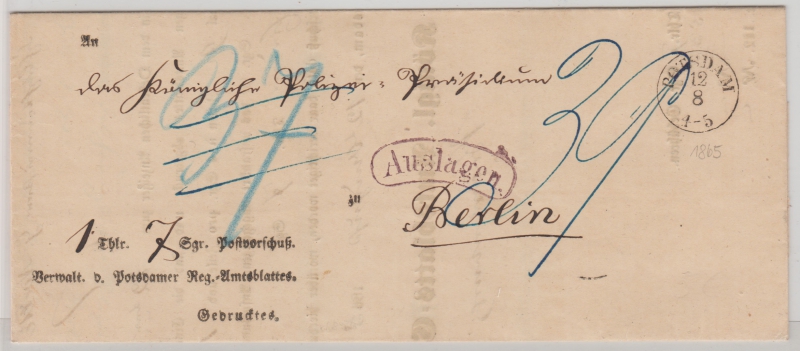 An
das Königliche Polizei-Präsidium
37
POTSDAM
12
8
4-5
1865
39
Auslagen.
zu
Berlin
1 Thlr. 7 Sgr. Postvorschuß.
Verwalt. d. Potsdamer Reg.-Amtsblattes.
Gedrucktes.